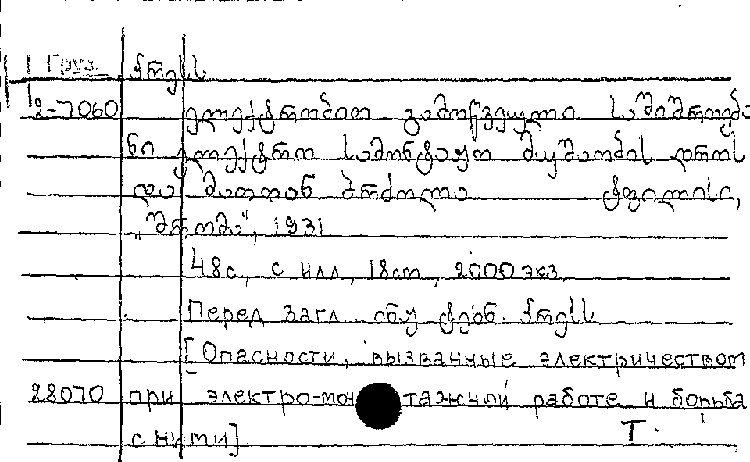 Груз.
2-7060 ელექტრობით გამოწვეული საშიშროება
ნი ელექტრო სამონტაჟო მუშაობის დროს
და მათთან ბრძოლა ტფილისი,
„შრომა“, 1931
48с., с илл, 18cm, 2000 экз.
Перед загл.
[Опасности, вызванные электричеством
28070 при электро-монтажной работе и борьба
с ними]
T.